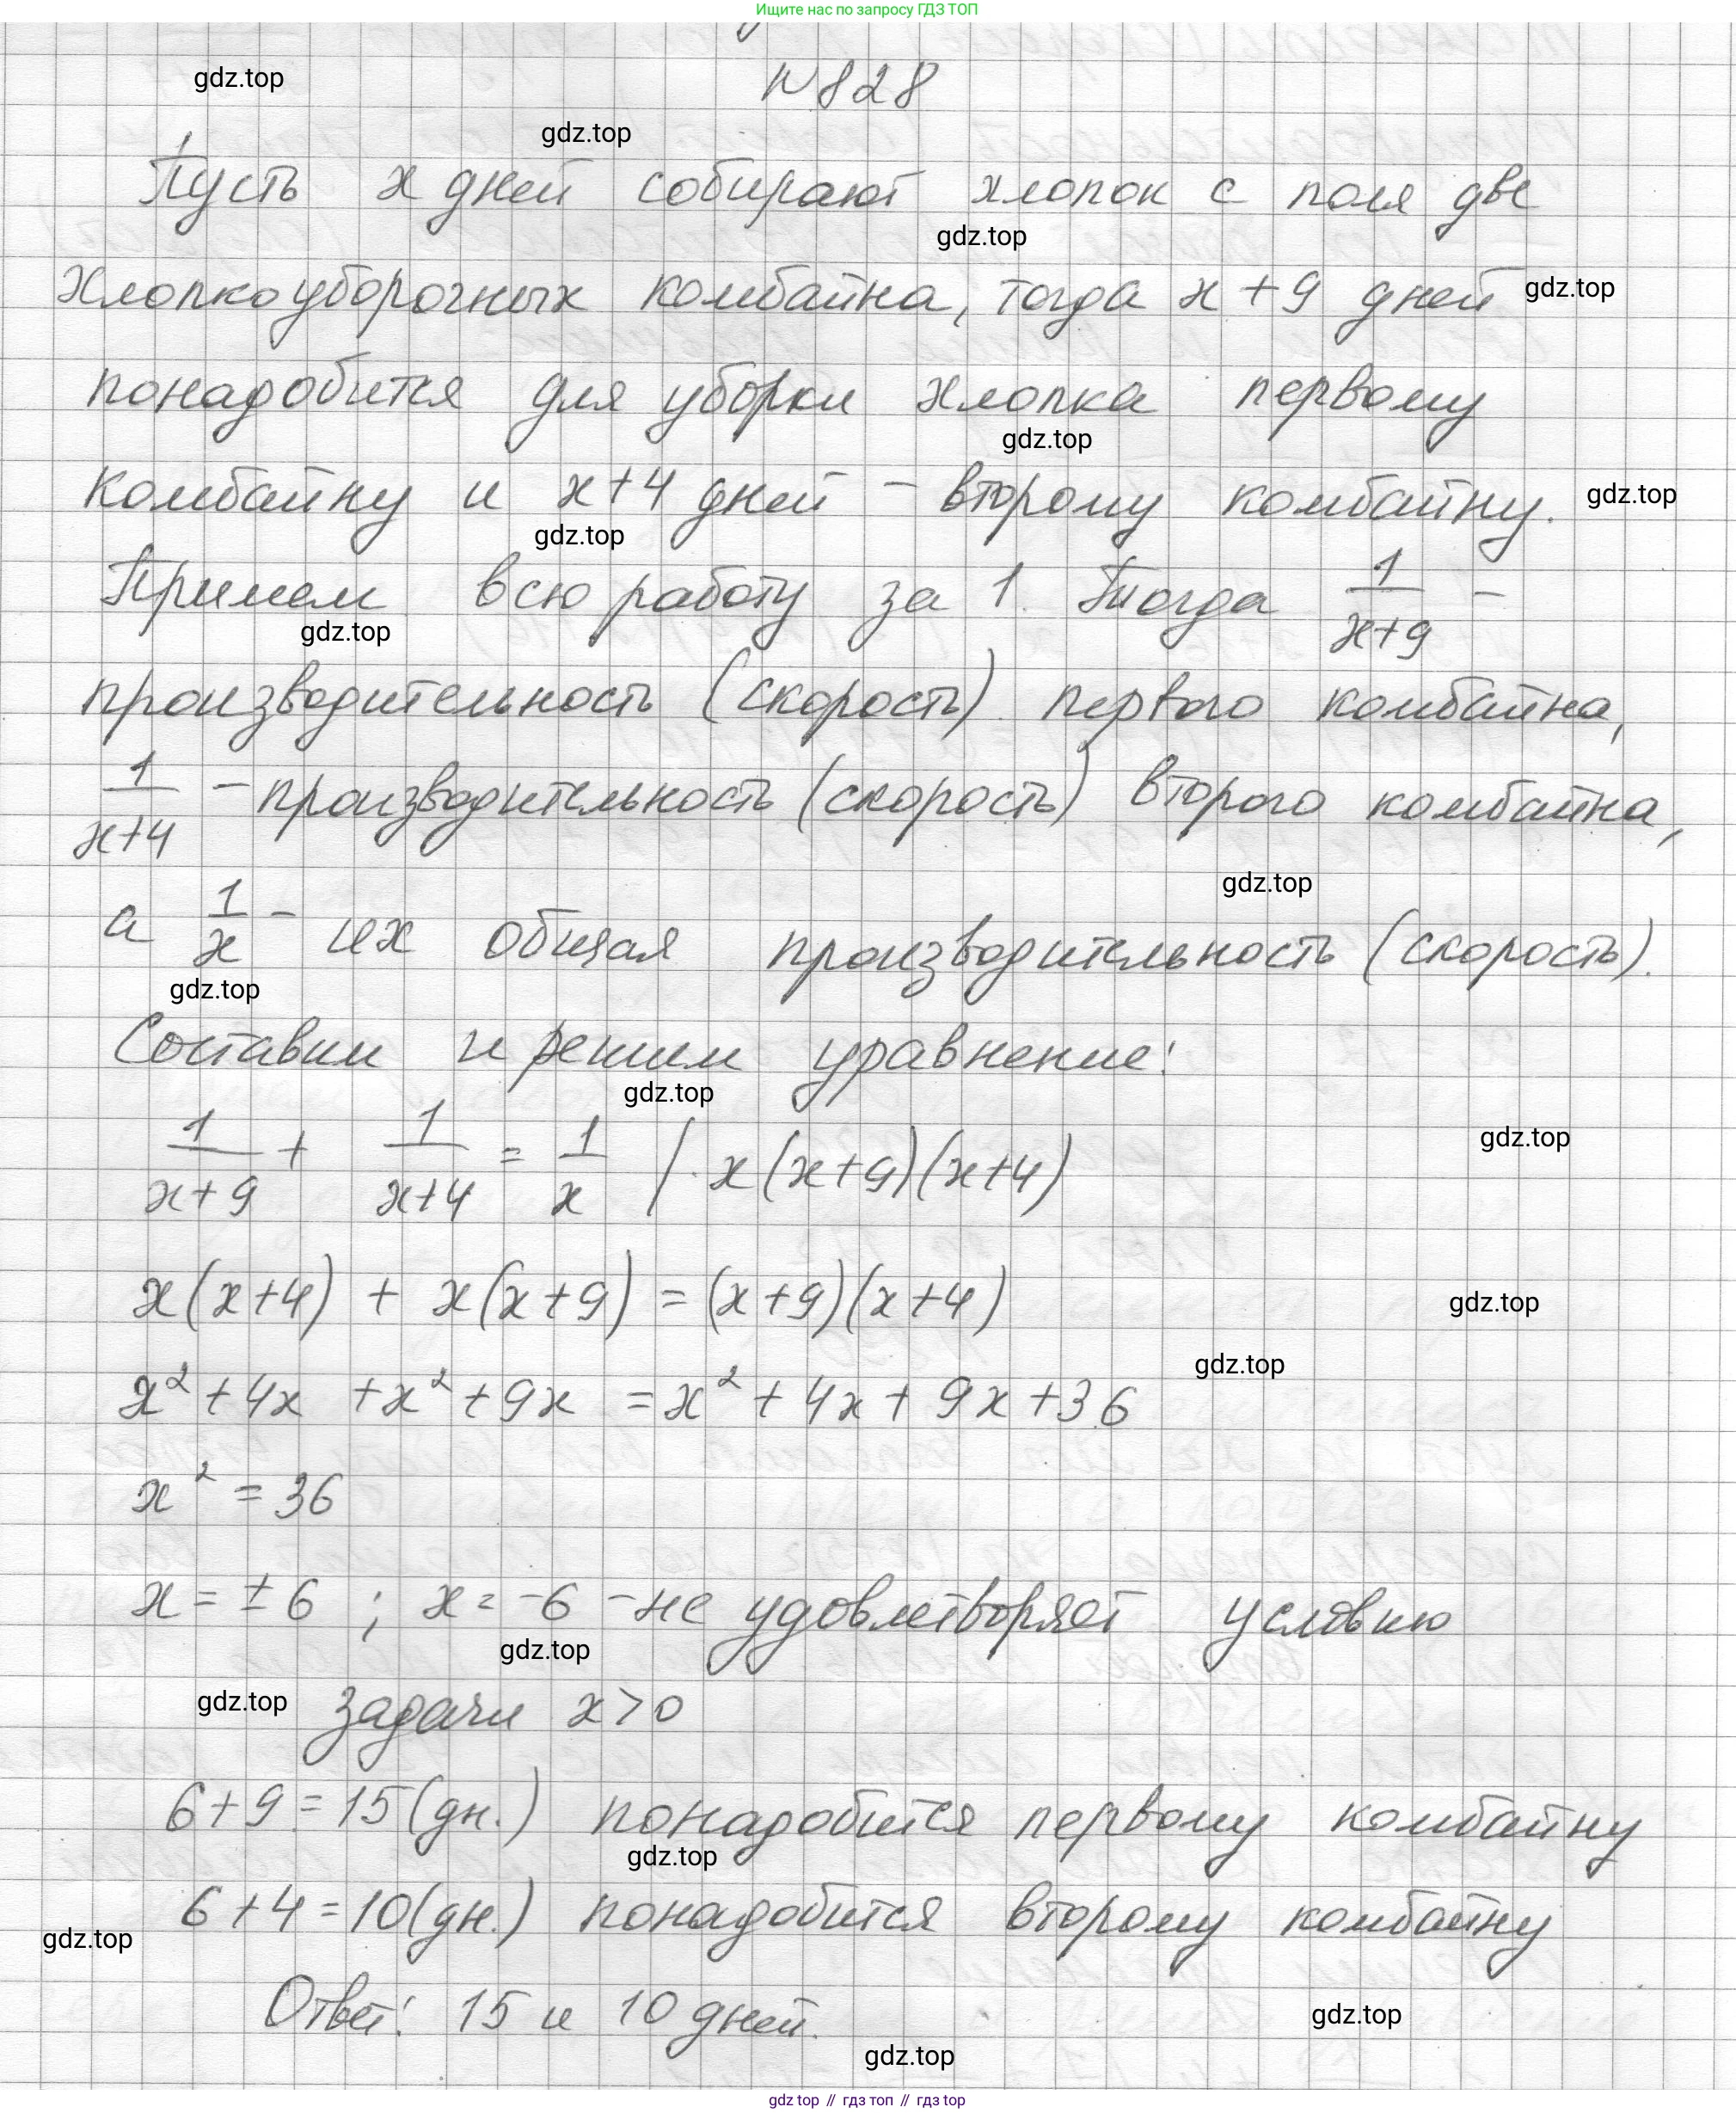 Ищите нас по запросу ГДЗ ТОП
N 828
gdz.top
gdz.top
Пусть x дней собирают хлопок с поля две
gdz.top
хлопкоуборочных комбайна, тогда x + 9 дней gdz.top
понадобится для уборки хлопка первому
gdz.top
комбайну и x+4 дней – второму комбайну. gdz.top
gdz.top
Примем всю работу за 1. Тогда 1/(x+9) –
gdz.top
производительность (скорость) первого комбайна,
1/(x+4) – производительность (скорость) второго комбайна,
gdz.top
а 1/x – их общая производительность (скорость).
gdz.top
Составим и решим уравнение:
gdz.top
1/(x+9) + 1/(x+4) = 1/x | · x(x+9)(x+4)
gdz.top
x(x+4) + x(x+9) = (x+9)(x+4)
gdz.top
gdz.top
x² + 4x + x² + 9x = x² + 4x + 9x + 36
x² = 36
x = ± 6 ; x = -6 – не удовлетворяет условию
gdz.top
gdz.top задачи x > 0
6 + 9 = 15 (дн.) понадобится первому комбайну
gdz.top
6 + 4 = 10 (дн.) понадобится второму комбайну
gdz.top
Ответ: 15 и 10 дней.
gdz.top
gdz.top
gdz top // гдз топ // гдз top